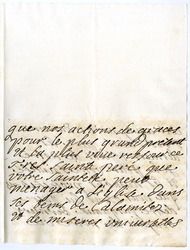 que nos actions de graces
pour le plus grand present
et la plus vive
tres saint pere que
votre sainteté peut
menager a l'eglise dans
ses tems de Calamitez
et de miseres universelles